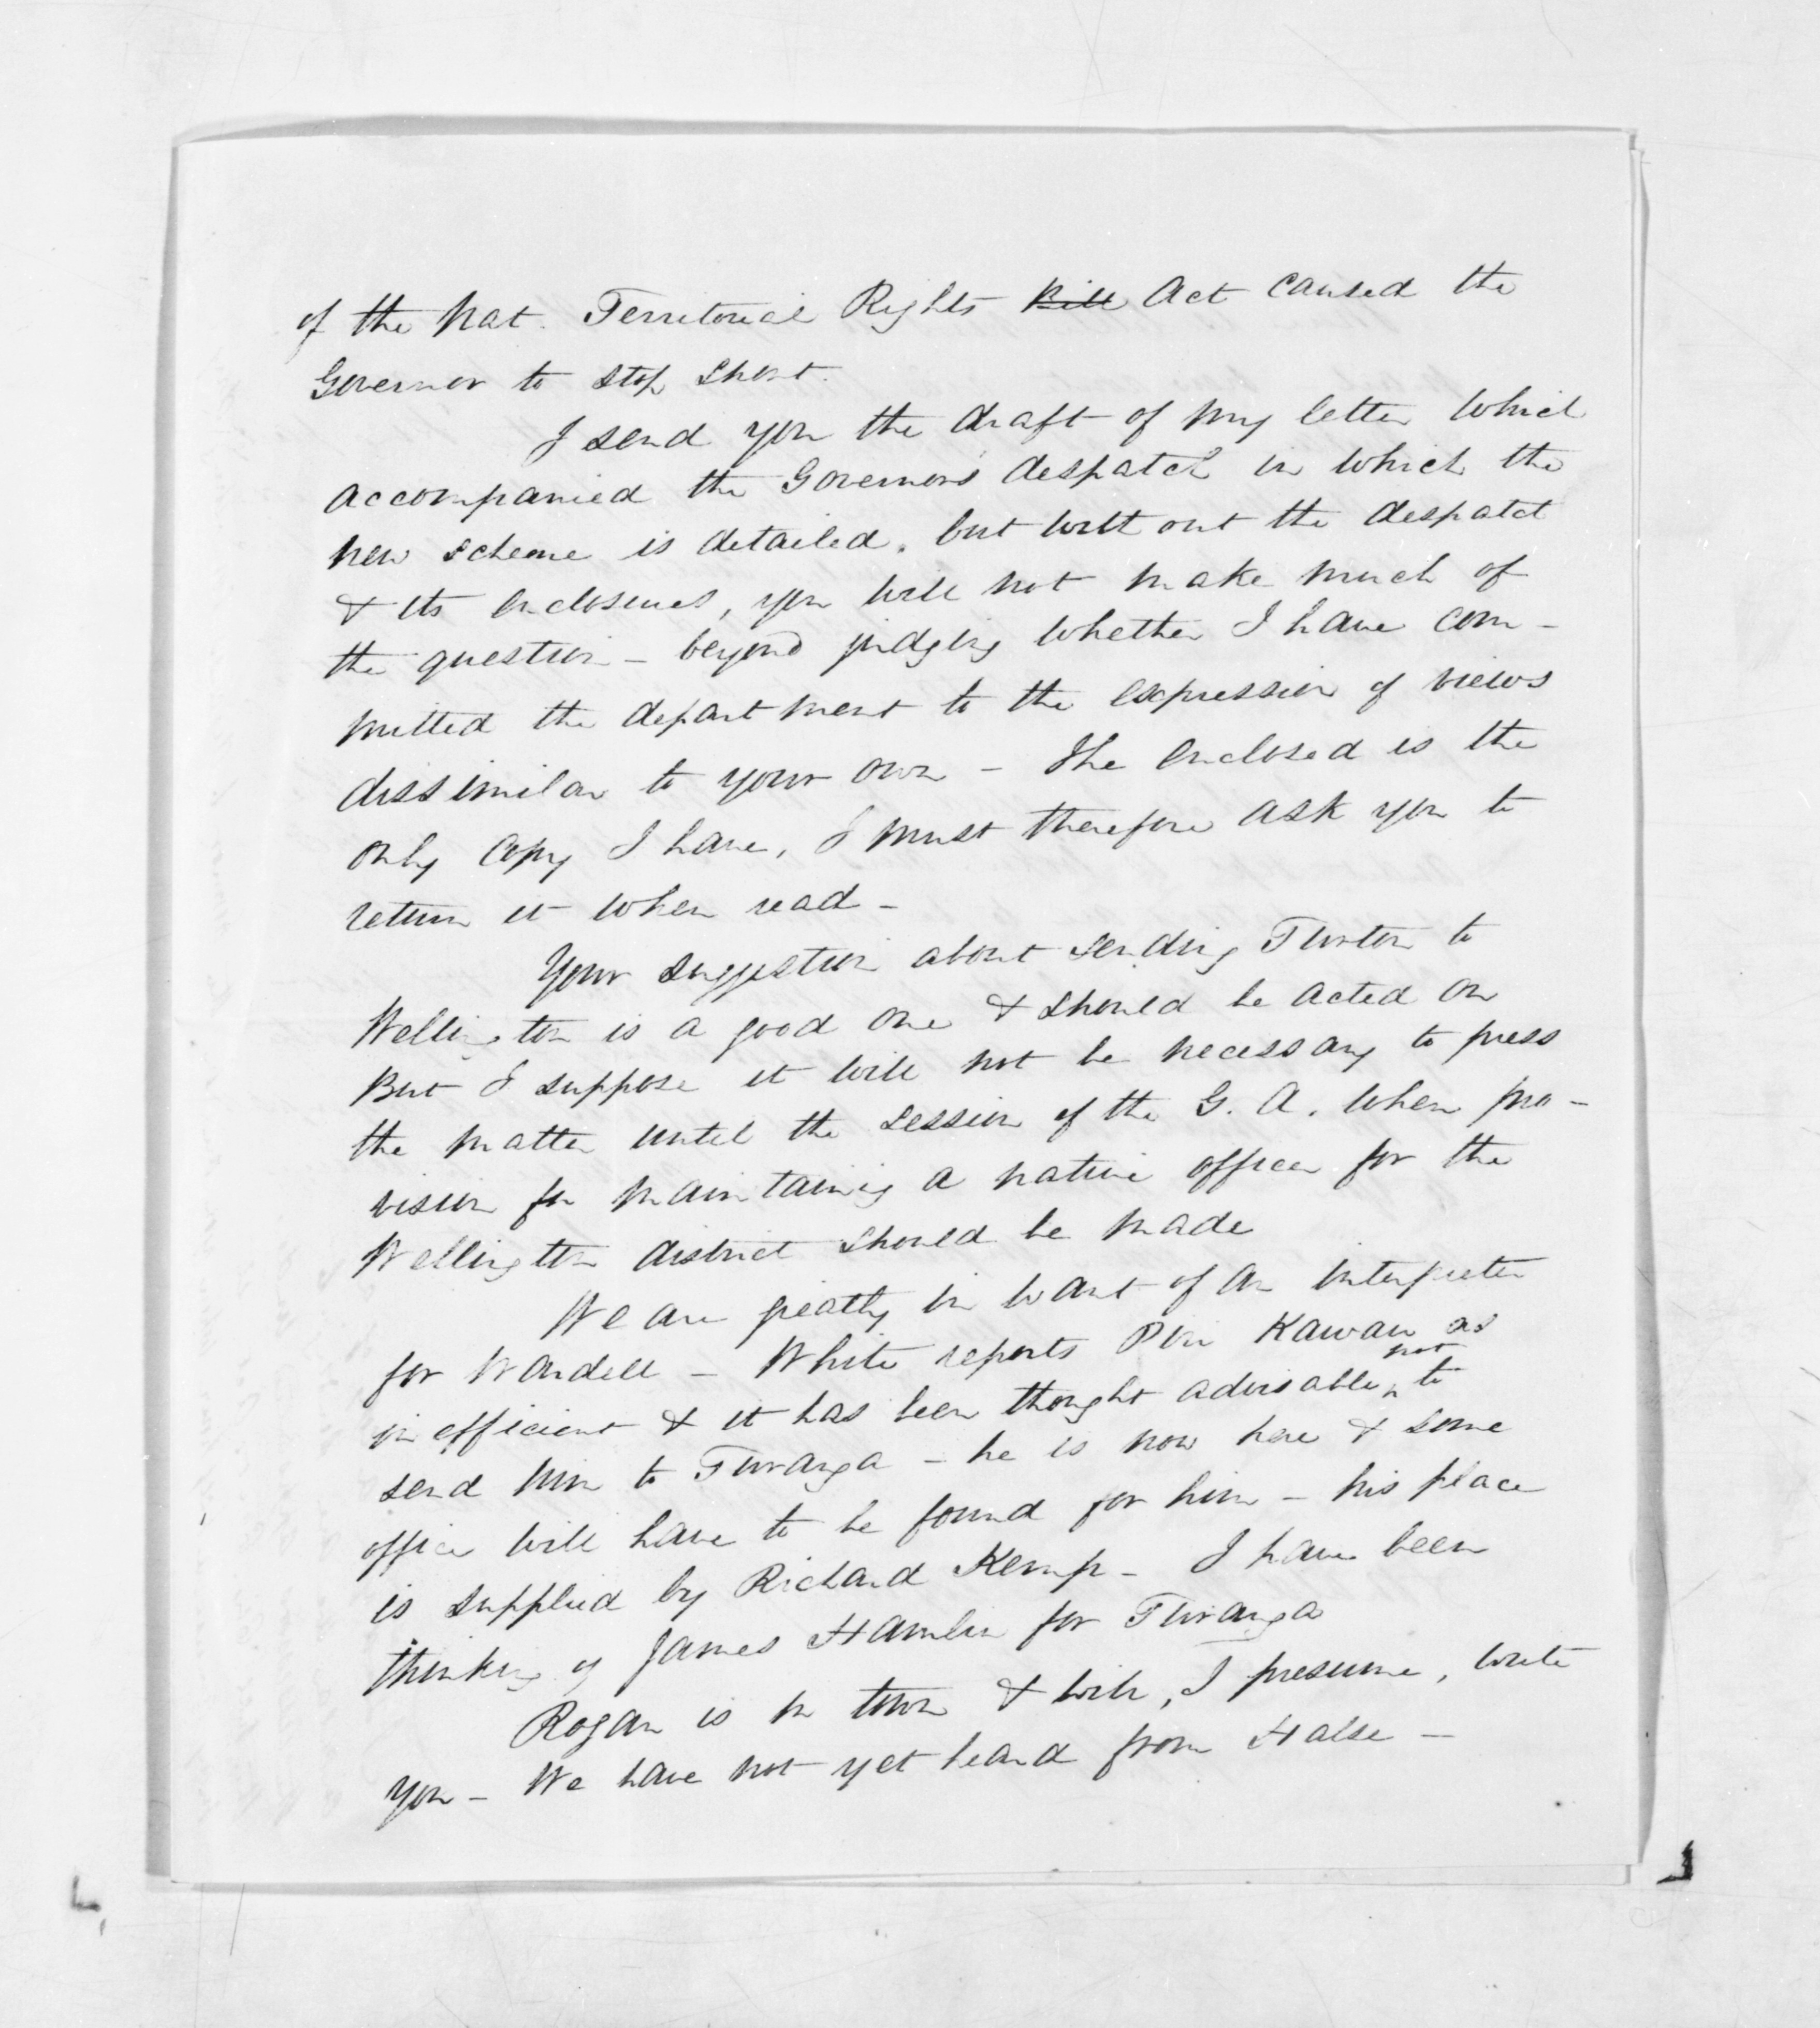 of the Nat. Territorial Rights Bill Act caused the
Governor to stop short.
I send you the draft of my letter which
accompanied the Governor's despatch in which the
new scheme is detailed, but without the despatch
& its enclosures, you will not make much of
the question - beyond judging whether I have com-
mitted the department to the expression of views
dissimilar to your own - The enclosed is the
only copy I have, I must therefore ask you to
return it when read -
Your suggestion about sending Turton to
Wellington is a good one & should be acted on
But I suppose it will not be necessary to press
the matter until the session of the G. A. when pro-
vision for maintaining a native officer for the
Wellington district should be made
We are greatly in want of an interpreter
for Wardell - White reports Piri Kawau as
inefficient & it has been thought advisable not to
send him to Turanga - he is now here & some
office will have to be found for him - his place
is supplied by Richard Kemp - I have been
thinking of James Hamlin for Turanga
Rogan is in town & will, I presume, write
you - We have not yet heard from Halse -